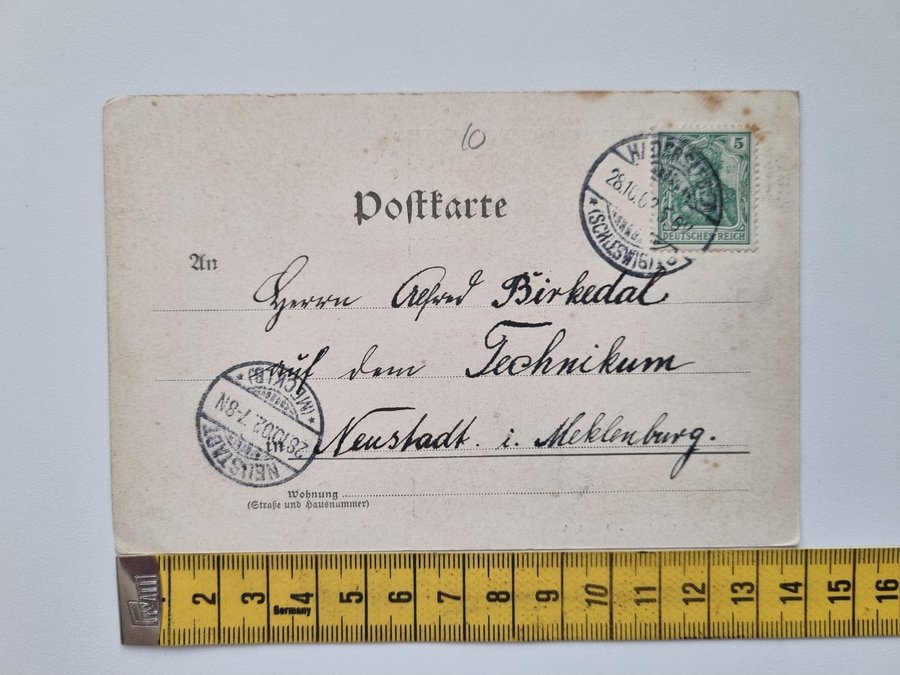 10
Postkarte
5
DEUTSCHES REICH
(SCHLESWIG)
An
Herrn Alfred Birkedal
auf dem Technikum
in Neustadt. i. Meklenburg.
NEUSTADT
28.10.02. 7-8N
*(MECKLB)*
Wohnung
(Straße und Hausnummer)
2 3 4 5 6 7 8 9 10 11 12 13 14 15 16
Germany